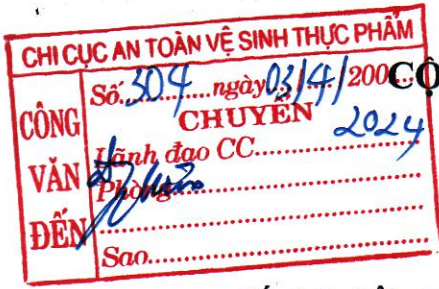 CHI CỤC AN TOÀN VỆ SINH THỰC PHẨM
CÔNG VĂN ĐẾN
Số 304 ngày 03/4/200 CỘ
CHUYỂN 2024
Lãnh đạo CC
Phòng
Sao